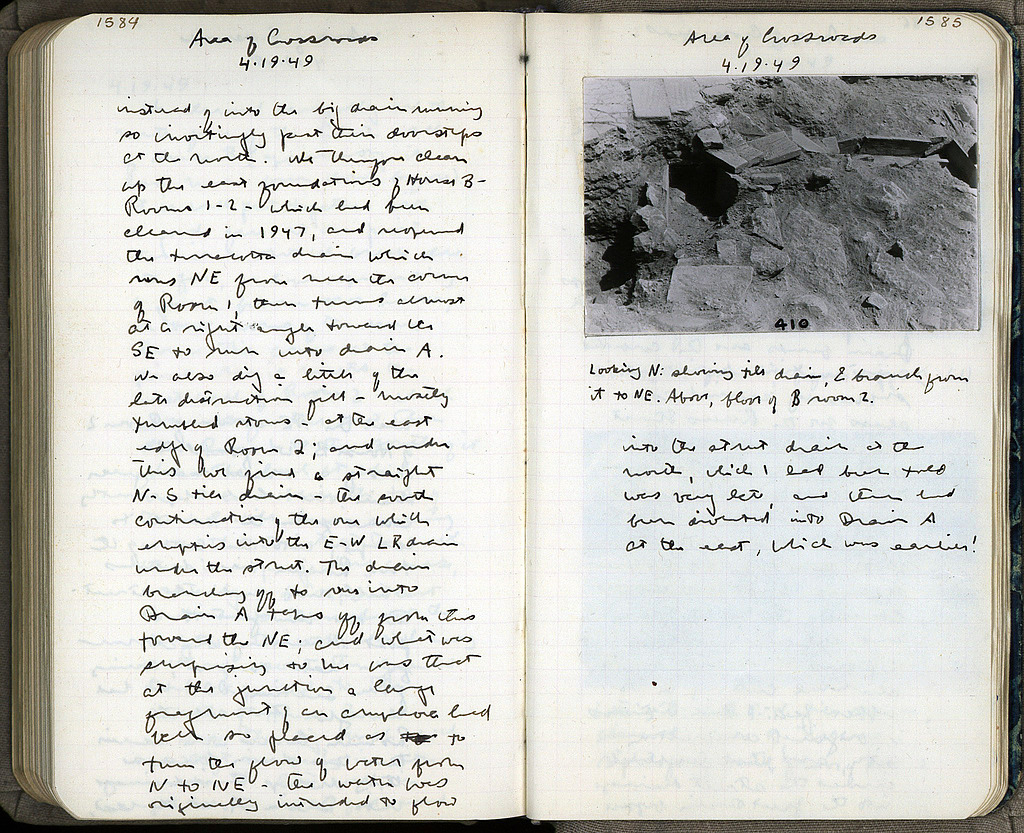 1584
Area of Crossroads
4.19.49
instead of into the big drain running
so invitingly past their doorsteps
at the north. We therefore clean
up the east foundations of House B-
Rooms 1-2 - which had been
cleared in 1947, and reopened
the terracotta drain which
runs NE from near the corner
of Room 1, then turns almost
at a right angle toward the
SE to run into drain A.
We also dig a little of the
late destruction fill - mostly
tumbled stones - at the east
edge of Room 2; and under
this we find a straight
N-S tile drain - the south
continuation of the one which
empties into the E-W LR drain
under the street. The drain
branching off to run into
Drain A takes off from this
toward the NE; and what was
surprising to me was that
at the junction a large
fragment of an amphora had
been so placed as to
turn the flow of water from
N to NE - the water was
originally intended to flow
1585
Area of Crossroads
4.19.49
410
Looking N: showing tile drain, & branch from
it to NE. Above, floor of B room 2.
into the street drain at the
north, which I had been told
was very late, and then had
been diverted into Drain A
at the east, which was earlier!